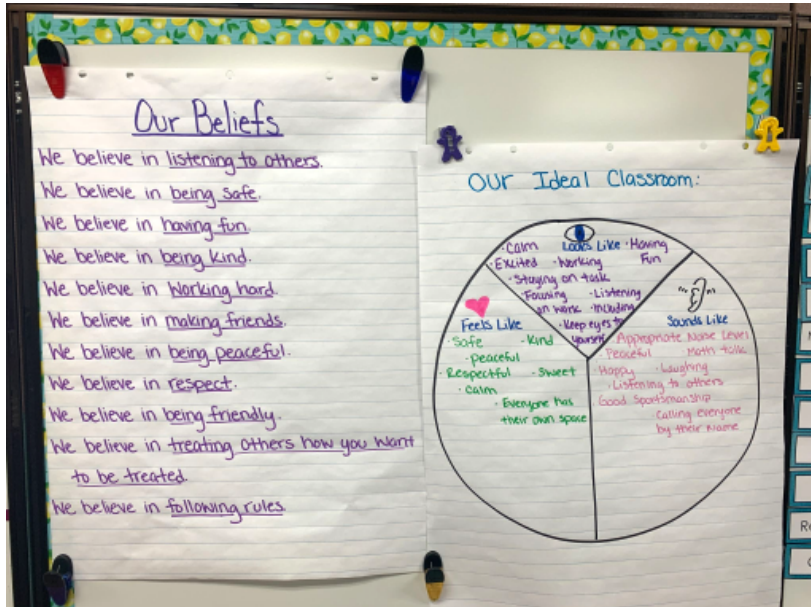 Our Beliefs
We believe in listening to others.
We believe in being safe.
We believe in having fun.
We believe in being kind.
We believe in working hard.
We believe in making friends.
We believe in being peaceful.
We believe in respect.
We believe in being friendly.
We believe in treating others how you want
to be treated.
We believe in following rules.
Our Ideal Classroom:
Looks Like
·Calm
·Having Fun
·Excited
·Working
·Staying on task
·Focusing on work
·Listening
·Including
·Keep eyes to yourself
Feels Like
·Safe
·Kind
·peaceful
·Respectful
·Sweet
·Calm
·Everyone has
their own space
Sounds Like
·Appropriate Noise Level
Peaceful
Math talk
·Happy
·Laughing
·Listening to others
Good Sportsmanship
·Calling everyone
by their name